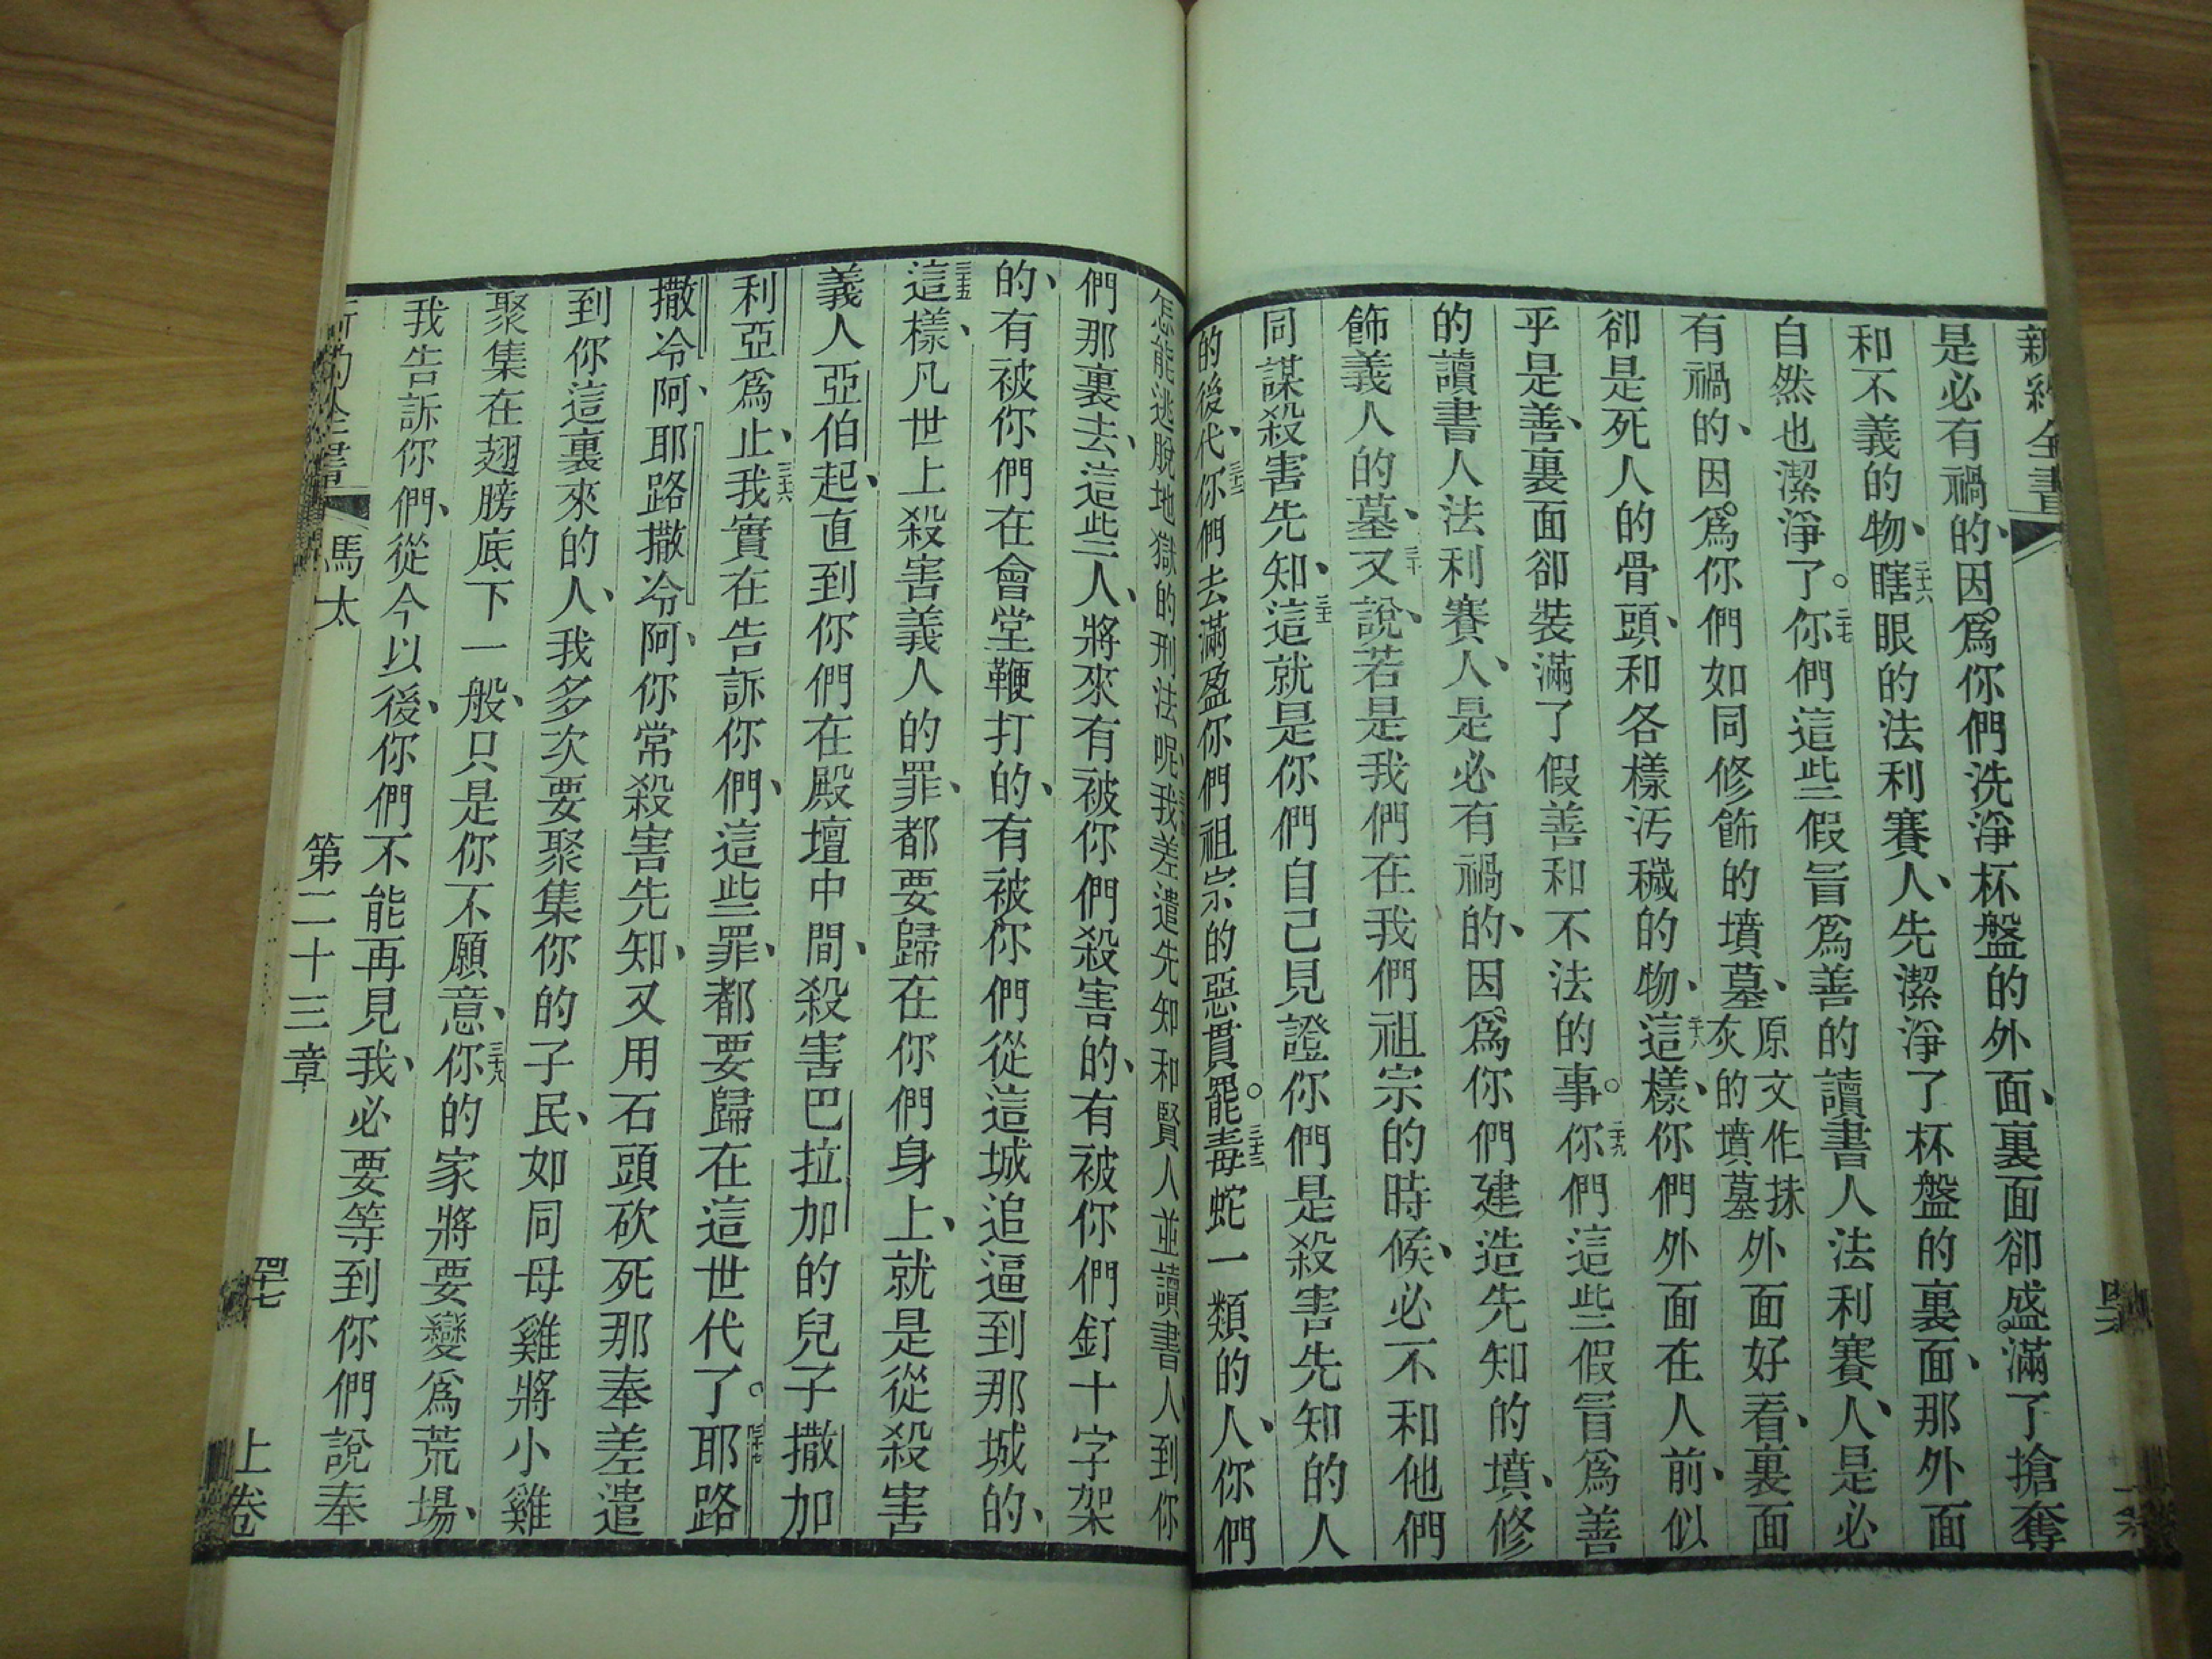 新約全書
是必有禍的、因爲你們洗淨杯盤的外面、裏面卻盛滿了搶奪
和不義的物、二十六瞎眼的法利賽人、先潔淨了杯盤的裏面、那外面
自然也潔淨了。二十七你們這些假冒爲善的讀書人法利賽人、是必
有禍的、因爲你們如同修飾的墳墓、原文作抹灰的墳墓外面好看、裏面
卻是死人的骨頭、和各樣汚穢的物、二十八這樣、你們外面在人前、似
乎是善、裏面卻裝滿了假善和不法的事。二十九你們這些假冒爲善
的讀書人法利賽人、是必有禍的、因爲你們建造先知的墳、修
飾義人的墓、三十又說、若是我們在我們祖宗的時候、必不和他們
同謀殺害先知、三十一這就是你們自己見證你們是殺害先知的人
的後代、三十二你們去滿盈你們祖宗的惡貫罷。三十三毒蛇一類的人、你們
怎能逃脫地獄的刑法呢、三十四我差遣先知和賢人並讀書人、到你
們那裏去、這些人、將來有被你們殺害的、有被你們釘十字架
的、有被你們在會堂鞭打的、有被你們從這城追逼到那城的、
三十五這樣、凡世上殺害義人的罪、都要歸在你們身上、就是從殺害
義人亞伯起、直到你們在殿壇中間、殺害巴拉加的兒子撒加
利亞爲止、三十六我實在告訴你們、這些罪、都要歸在這世代了。三十七耶路
撒冷阿、耶路撒冷阿、你常殺害先知、又用石頭砍死那奉差遣
到你這裏來的人、我多次要聚集你的子民、如同母雞將小雞
聚集在翅膀底下一般、只是你不願意、三十八你的家將要變爲荒場、
我告訴你們、從今以後、你們不能再見我、必要等到你們說奉
新約全書 馬太 第二十三章 四十七 上卷